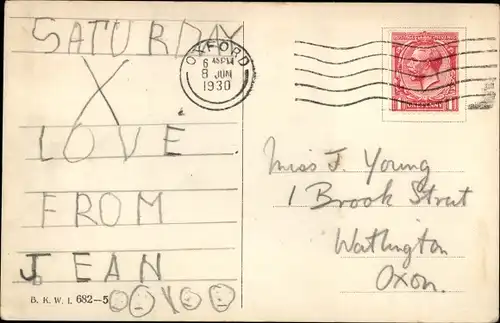 SATURDAY
X
LOVE
FROM
JEAN
B. K. W. I. 682-5
OOXOO
OXFORD
6 PM
8 JUN
1930
Miss J. Young
1 Brook Street
Watlington
Oxon.